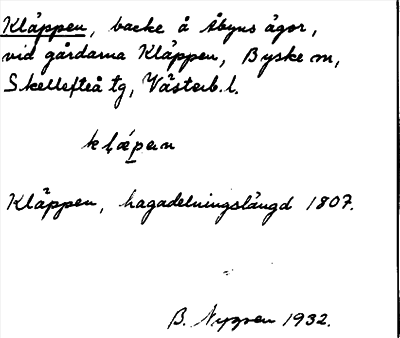 Kläppen, backe å Åbyns ägor,
vid gårdarna Kläppen, Byske sn,
Skellefteå tg, Västerb. l.
Kläppen, hagadelningslängd 1807.
B. Nygren 1932.